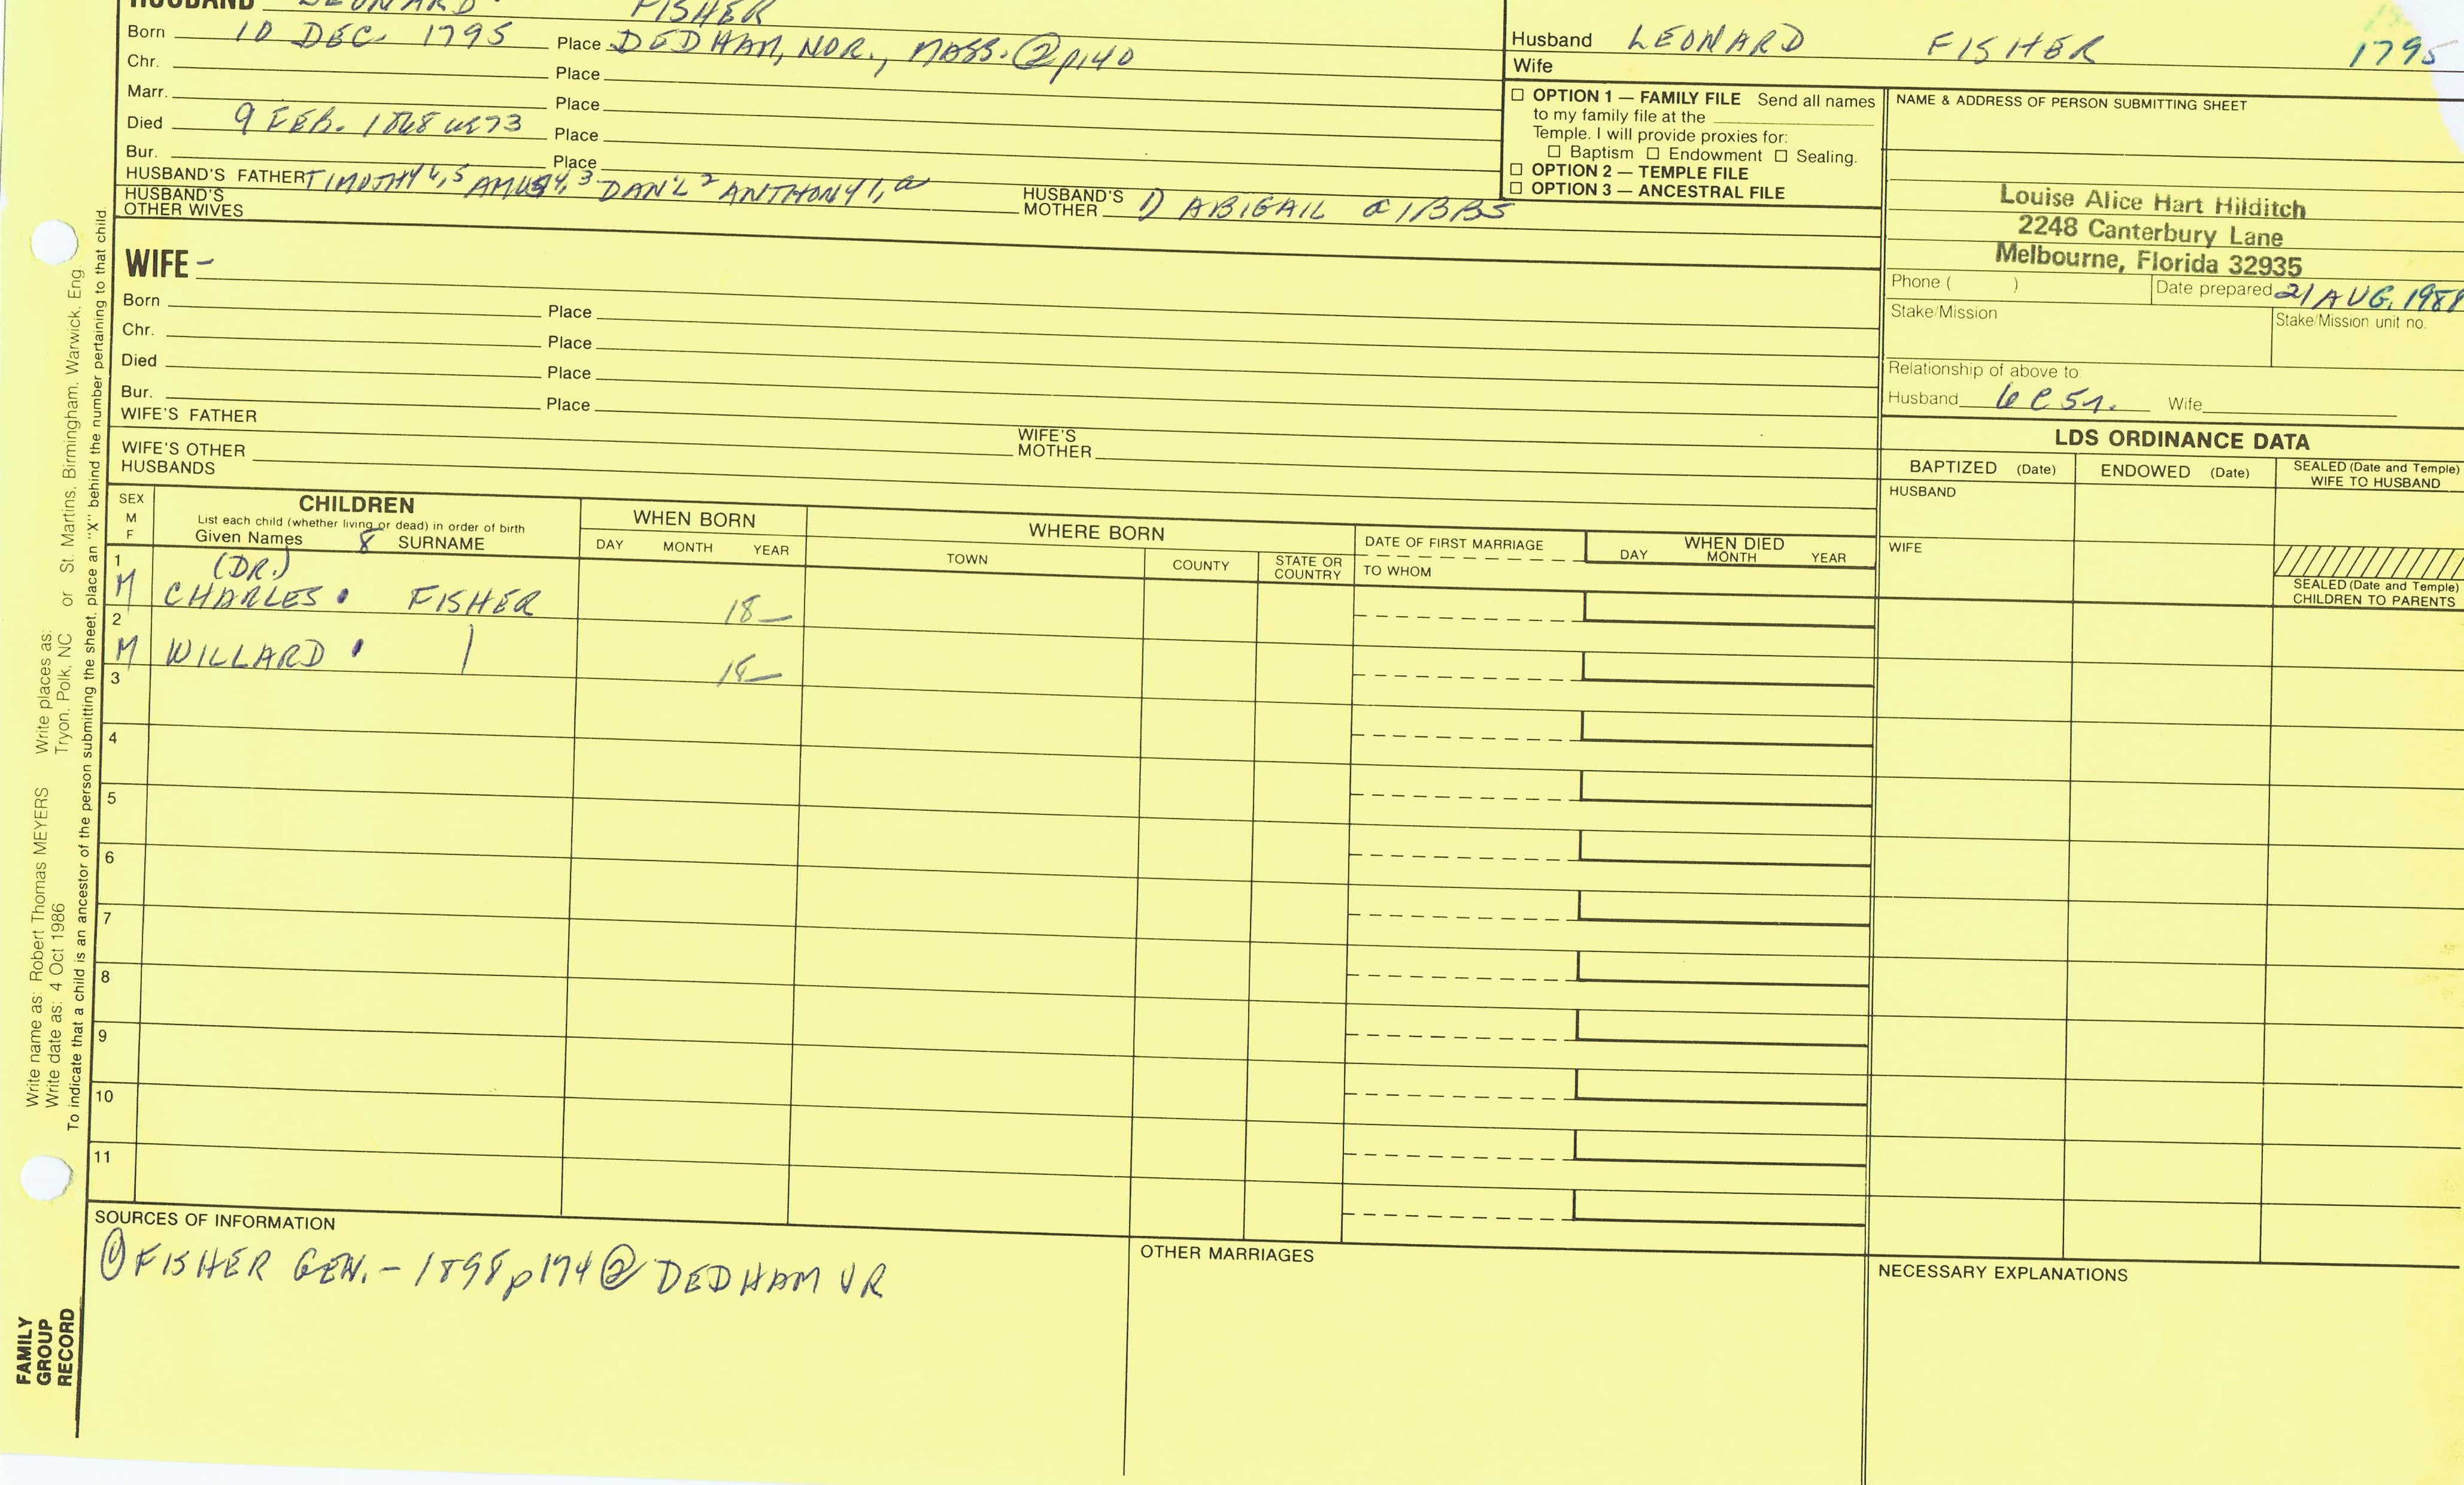 HUSBAND LEONARD FISHER
Born 10 DEC. 1795 Place DEDHAM, NOR., MASS. ② p140
Chr. Place
Marr. Place
Died 9 FEB. 1868 Place
Bur. Place
HUSBAND'S FATHER TIMOTHY 6, 5 AMOS 4, 3 DAN'L 2 ANTHONY 1, HUSBAND'S MOTHER ABIGAIL GIBBS
HUSBAND'S OTHER WIVES
Husband LEONARD FISHER 1795
Wife
☐ OPTION 1 — FAMILY FILE Send all names
to my family file at the
Temple. I will provide proxies for:
☐ Baptism ☐ Endowment ☐ Sealing.
☐ OPTION 2 — TEMPLE FILE
☐ OPTION 3 — ANCESTRAL FILE
NAME & ADDRESS OF PERSON SUBMITTING SHEET
Louise Alice Hart Hilditch
2248 Canterbury Lane
Melbourne, Florida 32935
Phone ( ) Date prepared 21 AUG. 198
Stake/Mission Stake/Mission unit no.
Relationship of above to:
Husband 6C5r. Wife
WIFE -
Born Place
Chr. Place
Died Place
Bur. Place
WIFE'S FATHER
WIFE'S MOTHER
WIFE'S OTHER
HUSBANDS
LDS ORDINANCE DATA
BAPTIZED (Date) ENDOWED (Date) SEALED (Date and Temple)
WIFE TO HUSBAND
HUSBAND
WIFE
SEALED (Date and Temple)
CHILDREN TO PARENTS
SEX
M
F
CHILDREN
List each child (whether living or dead) in order of birth
Given Names 8 SURNAME
WHEN BORN
DAY MONTH YEAR
WHERE BORN
TOWN COUNTY STATE OR COUNTRY
DATE OF FIRST MARRIAGE
TO WHOM
WHEN DIED
DAY MONTH YEAR
1 (DR.)
M CHARLES • FISHER 18—
2
M WILLARD • | 18—
3
4
5
6
7
8
9
10
11
SOURCES OF INFORMATION
① FISHER GEN. - 1898 p174 ② DEDHAM VR
OTHER MARRIAGES
NECESSARY EXPLANATIONS
FAMILY
GROUP
RECORD
Write name as: Robert Thomas MEYERS Write places as:
Write date as: 4 Oct 1986 Tryon, Polk, NC or St. Martins, Birmingham, Warwick, Eng
To indicate that a child is an ancestor of the person submitting the sheet, place an "X" behind the number pertaining to that child.